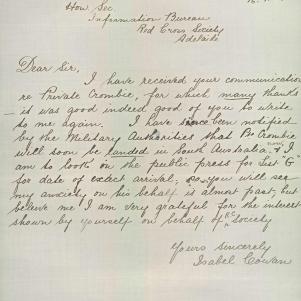 Hon Sec.
Information Bureau
Red Cross Society
Adelaide
Dear Sir,
I have received your communication
re Private Crombie, for which many thanks
- it was good indeed good of you to write
to me again. I have since been notified
by the Military Authorities that Pte Crombie
will soon be landed in South Australia, & I
am to look on the public press for List "G"
for date of exact arrival, so you will see
my anxiety on his behalf is almost past, but
believe me I am very grateful for the interest
shown by yourself on behalf of R.C. Society
Yours Sincerely
Isabel Cowan